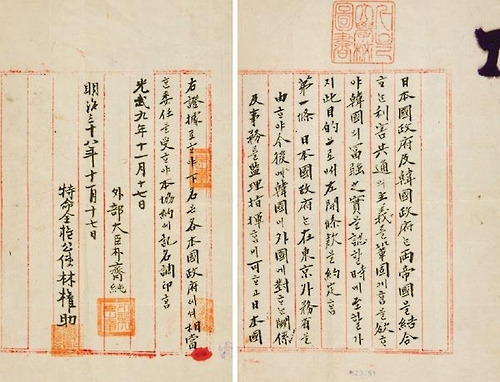 日本國政府及韓國政府는兩帝國을結合
ᄒᆞ는利害共通의主義을鞏固케ᄒᆞᆷ을欲ᄒᆞ
야韓國의富强之實을認ᄒᆞᆯ時에至ᄒᆞᆯ가
지此目的으로써左開條款을約定홈
第一條 日本國政府는在東京外務省을
由ᄒᆞ야今後에韓國이外國에對ᄒᆞ는關係
及事務를監理指揮홈이可ᄒᆞ고日本國
右證據로ᄒᆞ야下名은各本國政府에셔相當
ᄒᆞᆫ委任을受ᄒᆞ야本協約에記名調印홈
光武九年十一月十七日
外部大臣朴齊純
明治三十八年十一月十七日
特命全權公使林權助